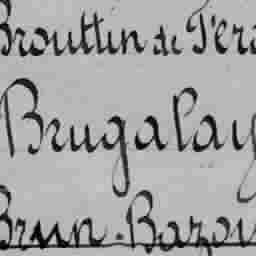 Brouttin de Fér
Brugalay
Brun-Bazou